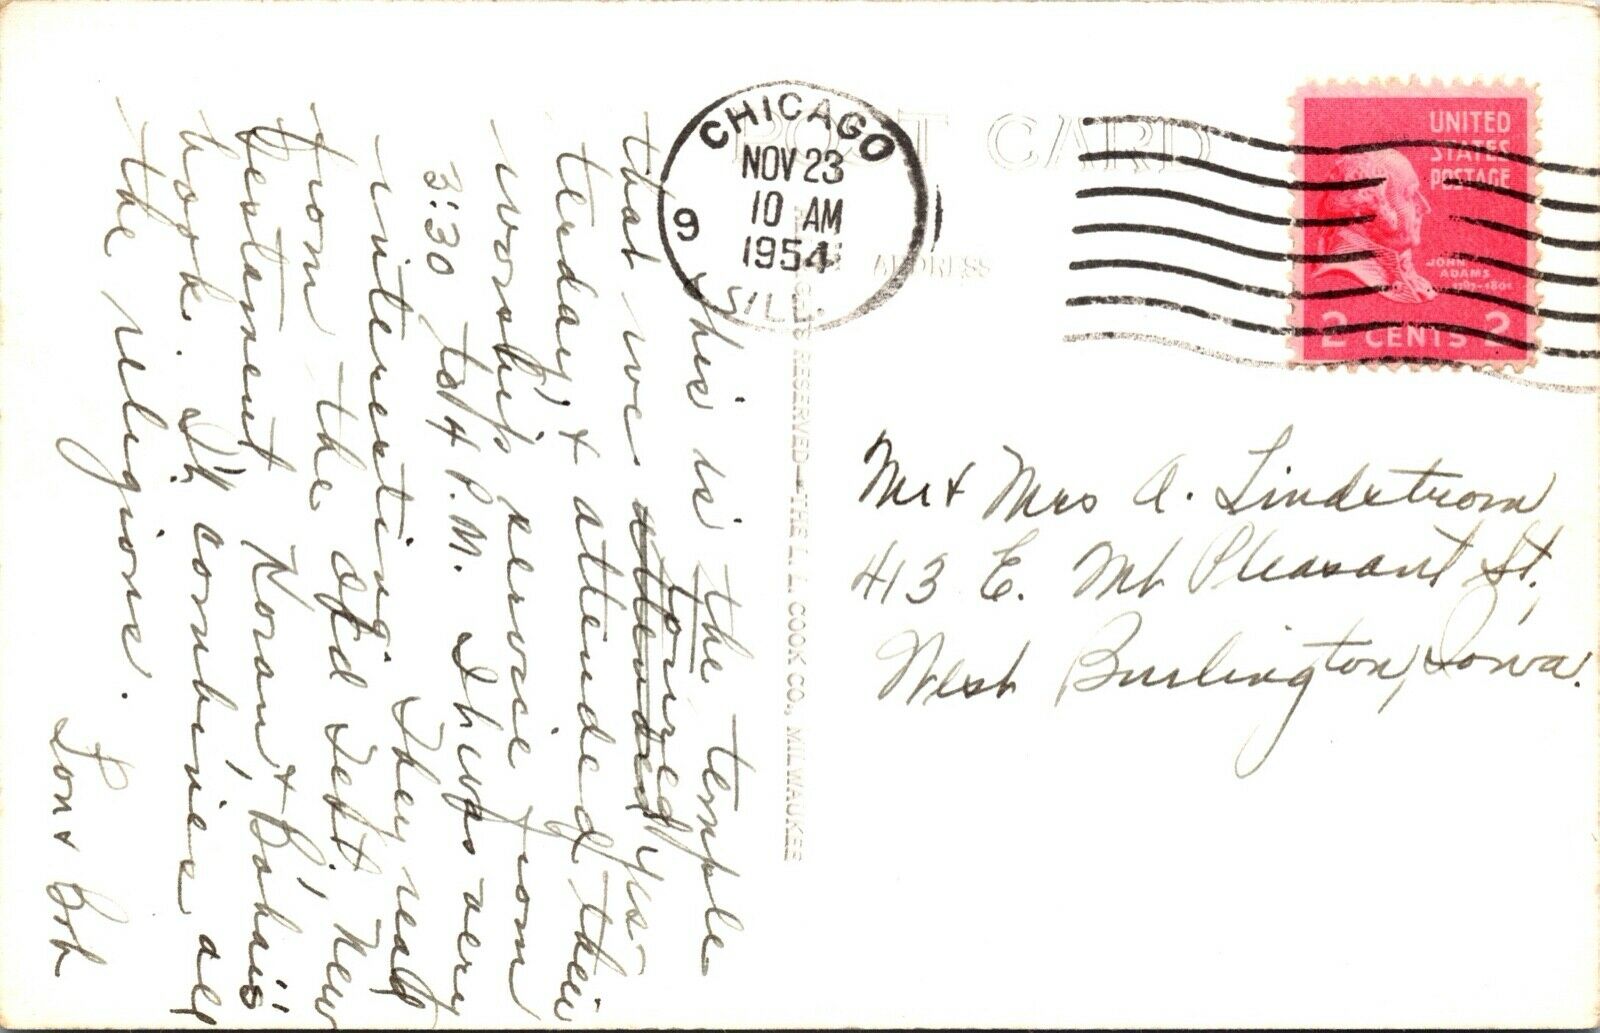 This is the temple
that we attended toured yes-
terday & attended their
worship service from
3:30 to 4 P.M. It was very
interesting. They read
from the Old Test, New
Testament Koran & Bahai's
book. It combines all
the religions.
Lon & Bob
POST CARD
ADDRESS
CHICAGO
NOV 23
10 AM
1954
9
ILL.
UNITED
STATES
POSTAGE
JOHN
ADAMS
1797-1801
2 CENTS 2
RESERVED—THE L. L. COOK CO., MILWAUKEE
Mr & Mrs A. Lindstrom
413 E. Mt Pleasant St,
West Burlington, Iowa.